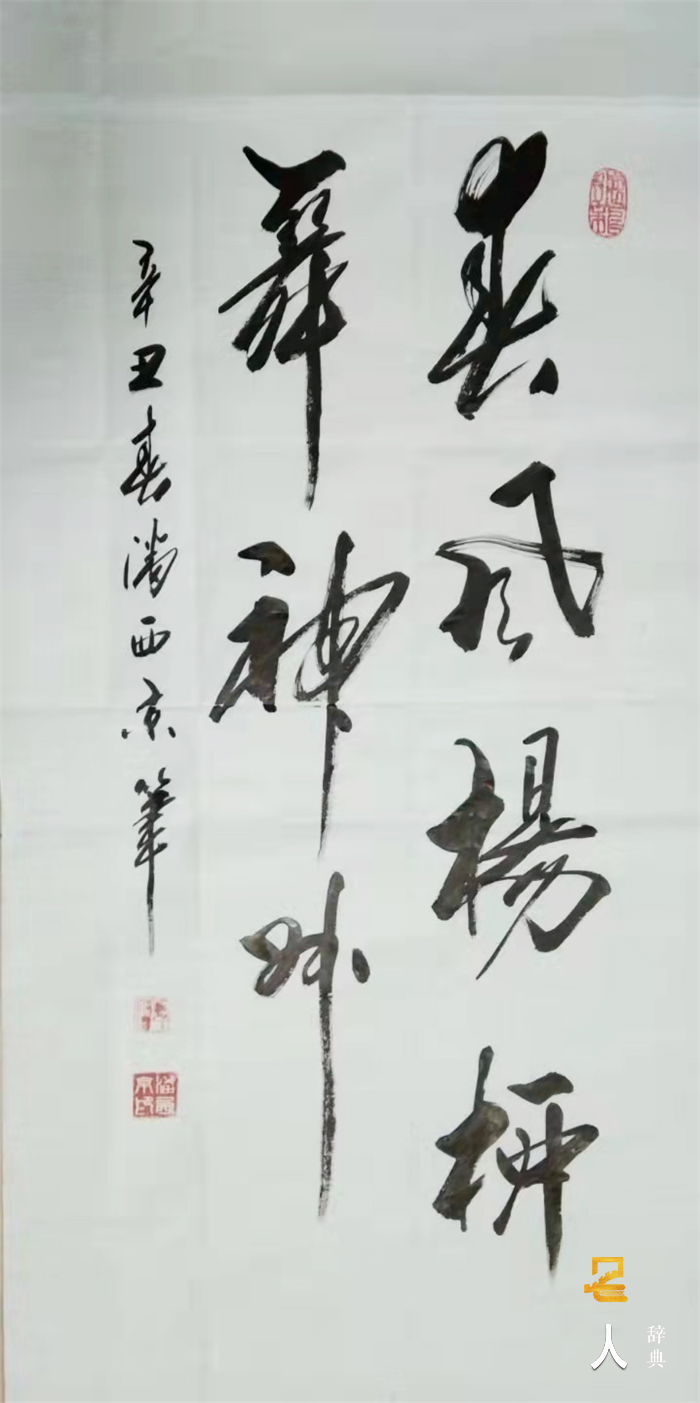 春风楊柳
舞神州
辛丑春潘西京筆
名人
辞典